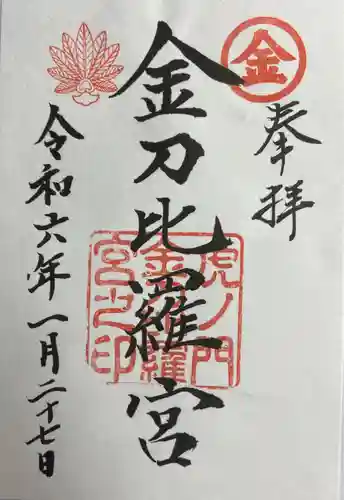 金
奉拝
金刀比羅宮
虎ノ門
金刀比羅
宮之印
令和六年一月二十七日